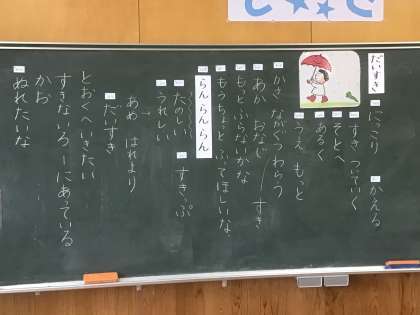 だいすき
にっこり かえる
すき ついていく
そとへ
あるく
うえ もっと
かさ ながぐつ わらう
あか おなじ すき
もっと ふらないかな
もっちょっと ふってほしいな
らん らん らん
たのしい すきっぷ
うれしい
あめ はれより
だいすき
とおくへいきたい
すきないろ にあっている
かお
ぬれたいな